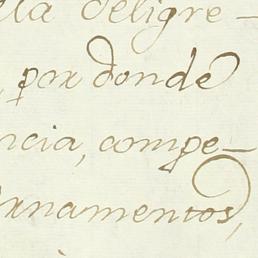 ella feligre-
, por donde
ncia, compe-
ornamentos,